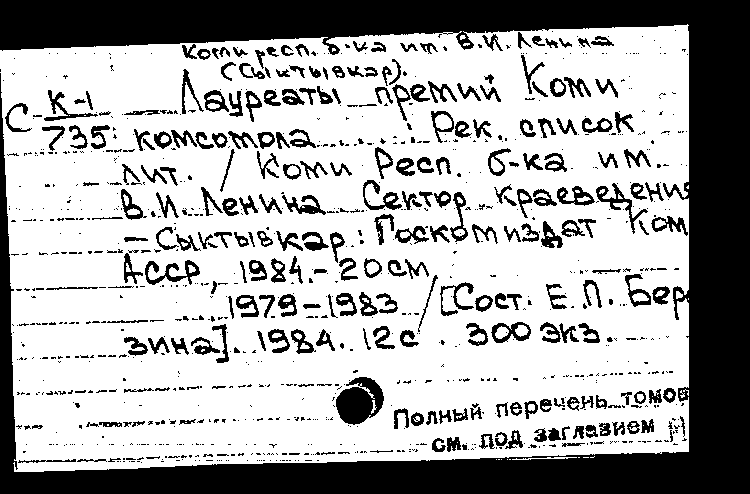 Коми респ. б-ка им. В.И. Ленина
(Сыктывкар).
С К-1 Лауреаты премий Коми
735 комсомола ....: Рек. список
лит. / Коми Респ. б-ка им.
В.И. Ленина. Сектор краеведения
– Сыктывкар: Госкомиздат Ком
АССР, 1984. – 20 см.
1979–1983 / [Сост. Е.П. Бере
зина]. 1984. 12 с. 300 экз.
Полный перечень томов
см. под заглавием